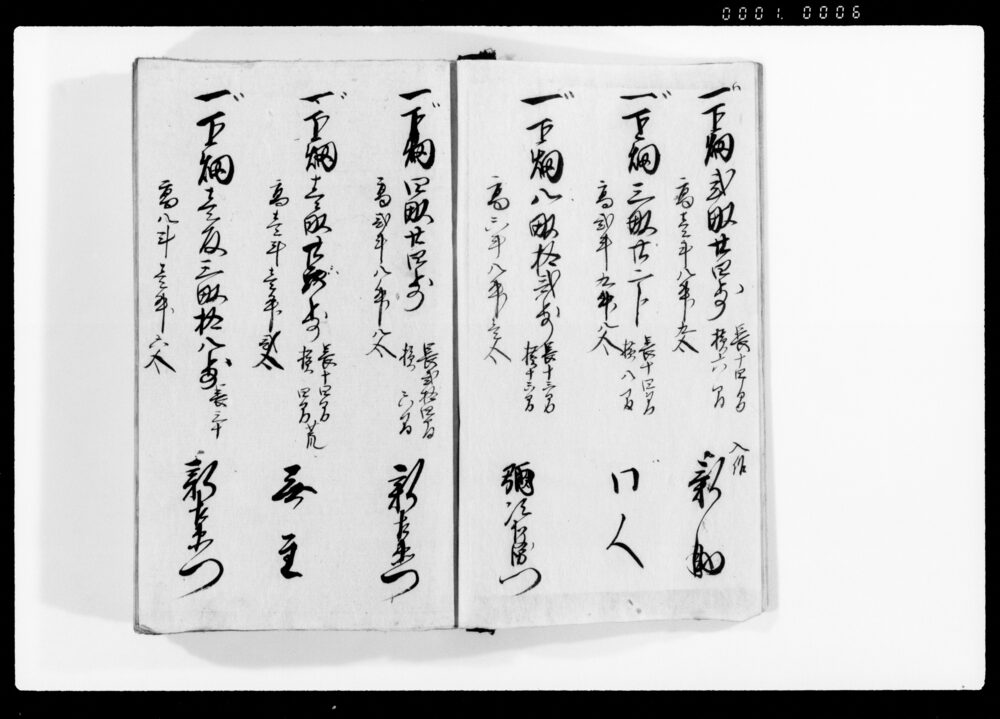 0001. 0006
一下畑弐畝廿四歩
長十四間
横六間
入作
新助
高壱斗八升九合
一下畑三畝廿二卜
長十四間
横八間
同人
高弐斗九升八合
一下畑八畝拾弐歩
彌次右衛門
高六斗八升壱合
一下畑四畝廿四歩
長弐拾四間
横六間
新左衛門
高弐斗八升八合
一下畑壱畝廿六歩
長十四間
横四間
荒
無主
高壱斗壱升弐合
一下畑壱反三畝拾八歩
長三十
新左衛門
高八斗壱升六合